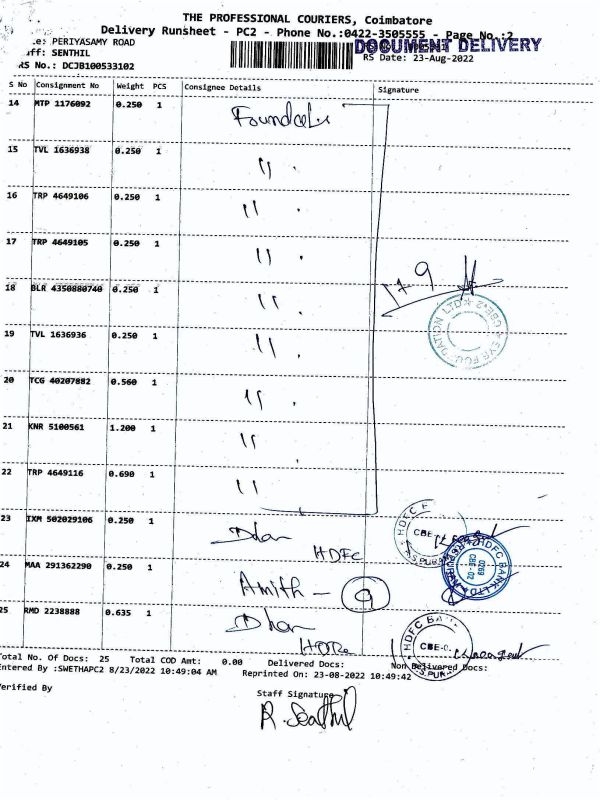 THE PROFESSIONAL COURIERS, Coimbatore
Delivery Runsheet - PC2 - Phone No.:0422-3505555 - Page No.:2
DOCUMENT DELIVERY
e: PERIYASAMY ROAD
ff: SENTHIL
RS No.: DCJB100533102
RS Date: 23-Aug-2022
S No Consignment No Weight PCS Consignee Details Signature
14 MTP 1176092 0.250 1
15 TVL 1636938 0.250 1 "
16 TRP 4649106 0.250 1 "
17 TRP 4649105 0.250 1 "
18 BLR 4350880740 0.250 1 "
19 TVL 1636936 0.250 1 "
20 TCG 40207882 0.560 1 "
21 KNR 5100561 1.200 1 "
22 TRP 4649116 0.690 1 "
23 IXM 502029106 0.250 1
HDFC
24 MAA 291362290 0.250 1 Amith - 9
25 RMD 2238888 0.635 1
Total No. Of Docs: 25 Total COD Amt: 0.00 Delivered Docs: Non Delivered Docs:
Entered By :SWETHAPC2 8/23/2022 10:49:04 AM Reprinted On: 23-08-2022 10:49:42
Verified By
Staff Signature
R. Senthil